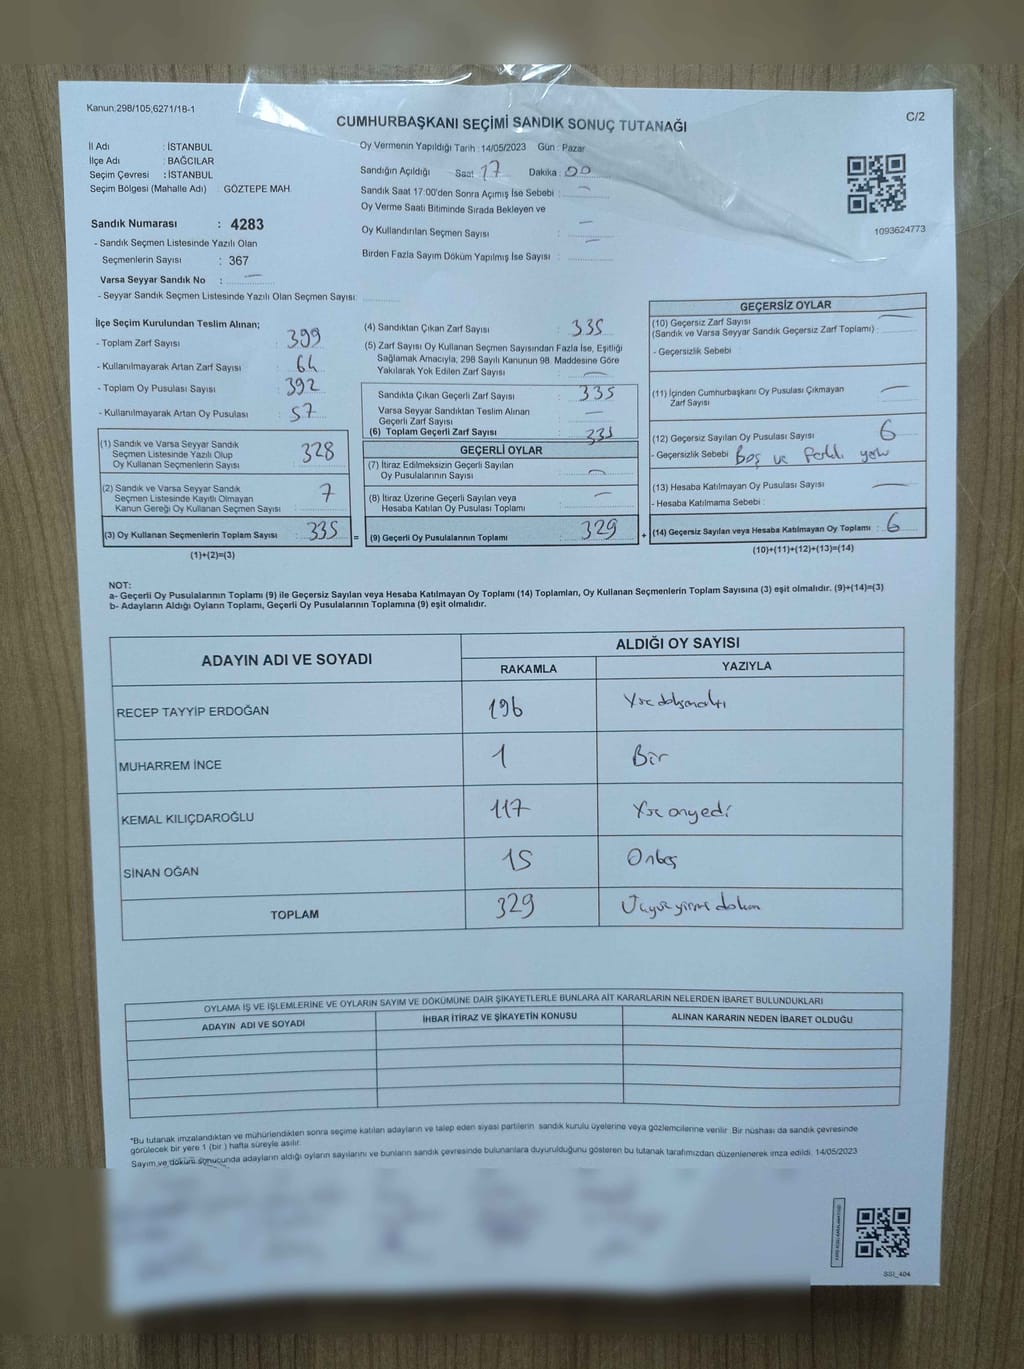 Kanun,298/105;6271/18-1
C/2
CUMHURBAŞKANI SEÇİMİ SANDIK SONUÇ TUTANAĞI
İl Adı : İSTANBUL
İlçe Adı : BAĞCILAR
Seçim Çevresi : İSTANBUL
Seçim Bölgesi (Mahalle Adı) : GÖZTEPE MAH.
Oy Vermenin Yapıldığı Tarih : 14/05/2023 Gün : Pazar
Sandığın Açıldığı Saat 17 Dakika : 00
Sandık Saat 17:00'den Sonra Açımış İse Sebebi : —
Oy Verme Saati Bitiminde Sırada Bekleyen ve
Oy Kullandırılan Seçmen Sayısı : —
Birden Fazla Sayım Döküm Yapılmış İse Sayısı : —
1093624773
Sandık Numarası : 4283
- Sandık Seçmen Listesinde Yazılı Olan
Seçmenlerin Sayısı : 367
Varsa Seyyar Sandık No : —
- Seyyar Sandık Seçmen Listesinde Yazılı Olan Seçmen Sayısı:
İlçe Seçim Kurulundan Teslim Alınan;
- Toplam Zarf Sayısı : 399
- Kullanılmayarak Artan Zarf Sayısı : 64
- Toplam Oy Pusulası Sayısı : 392
- Kullanılmayarak Artan Oy Pusulası : 57
(1) Sandık ve Varsa Seyyar Sandık
Seçmen Listesinde Yazılı Olup
Oy Kullanan Seçmenlerin Sayısı : 328
(2) Sandık ve Varsa Seyyar Sandık
Seçmen Listesinde Kayıtlı Olmayan
Kanun Gereği Oy Kullanan Seçmen Sayısı : 7
(3) Oy Kullanan Seçmenlerin Toplam Sayısı : 335 =
(1)+(2)=(3)
(4) Sandıktan Çıkan Zarf Sayısı : 335
(5) Zarf Sayısı Oy Kullanan Seçmen Sayısından Fazla İse, Eşitliği
Sağlamak Amacıyla; 298 Sayılı Kanunun 98. Maddesine Göre
Yakılarak Yok Edilen Zarf Sayısı : —
Sandıkta Çıkan Geçerli Zarf Sayısı : 335
Varsa Seyyar Sandıktan Teslim Alınan
Geçerli Zarf Sayısı : —
(6) Toplam Geçerli Zarf Sayısı : 335
GEÇERLİ OYLAR
(7) İtiraz Edilmeksizin Geçerli Sayılan
Oy Pusulalarının Sayısı : —
(8) İtiraz Üzerine Geçerli Sayılan veya
Hesaba Katılan Oy Pusulası Toplamı : —
(9) Geçerli Oy Pusulalarının Toplamı : 329 +
GEÇERSİZ OYLAR
(10) Geçersiz Zarf Sayısı —
(Sandık ve Varsa Seyyar Sandık Geçersiz Zarf Toplamı) :
- Geçersizlik Sebebi :
(11) İçinden Cumhurbaşkanı Oy Pusulası Çıkmayan
Zarf Sayısı —
(12) Geçersiz Sayılan Oy Pusulası Sayısı : 6
- Geçersizlik Sebebi Boş ve
(13) Hesaba Katılmayan Oy Pusulası Sayısı : —
- Hesaba Katılmama Sebebi :
(14) Geçersiz Sayılan veya Hesaba Katılmayan Oy Toplamı : 6
(10)+(11)+(12)+(13)=(14)
NOT:
a- Geçerli Oy Pusulalarının Toplamı (9) ile Geçersiz Sayılan veya Hesaba Katılmayan Oy Toplamı (14) Toplamları, Oy Kullanan Seçmenlerin Toplam Sayısına (3) eşit olmalıdır. (9)+(14)=(3)
b- Adayların Aldığı Oyların Toplamı, Geçerli Oy Pusulalarının Toplamına (9) eşit olmalıdır.
ADAYIN ADI VE SOYADI
ALDIĞI OY SAYISI
RAKAMLA YAZIYLA
RECEP TAYYİP ERDOĞAN 196 Yüzdoksanaltı
MUHARREM İNCE 1 Bir
KEMAL KILIÇDAROĞLU 117 Yüzonyedi
SİNAN OĞAN 15 Onbeş
TOPLAM 329 Üçyüzyirmidokuz
OYLAMA İŞ VE İŞLEMLERİNE VE OYLARIN SAYIM VE DÖKÜMÜNE DAİR ŞİKAYETLERLE BUNLARA AİT KARARLARIN NELERDEN İBARET BULUNDUKLARI
ADAYIN ADI VE SOYADI İHBAR İTİRAZ VE ŞİKAYETİN KONUSU ALINAN KARARIN NEDEN İBARET OLDUĞU
*Bu tutanak imzalandıktan ve mühürlendikten sonra seçime katılan adayların ve talep eden siyasi partilerin sandık kurulu üyelerine veya gözlemcilerine verilir. Bir nüshası da sandık çevresinde
görülecek bir yere 1 (bir) hafta süreyle asılır.
Sayım ve döküm sonucunda adayların aldığı oyların sayılarını ve bunların sandık çevresinde bulunanlara duyurulduğunu gösteren bu tutanak tarafımızdan düzenlenerek imza edildi. 14/05/2023
SSI_404